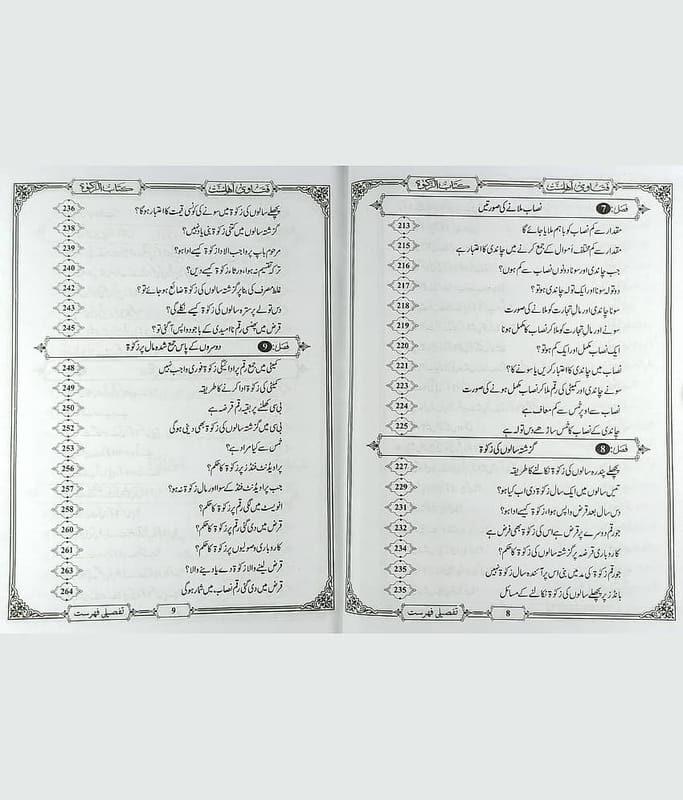 فتاویٰ اھلسنت كتاب الزكوة
فصل: 7 نصاب ملانے کی صورتیں
مقدار سے کم نصاب کو باہم ملایا جائے گا 213
مقدار سے کم مختلف اَموال کے جمع کرنے میں چاندی کا اعتبار ہے 215
جب چاندی اور سونا دونوں نصاب سے کم ہوں؟ 216
دو تولہ سونا اور ایک تولہ چاندی ہو تو؟ 217
سونا چاندی اور مالِ تجارت کو ملانے کی صورت 218
سونے اور مالِ تجارت کو ملا کر نصاب کا مکمل ہونا 219
ایک نصاب مکمل اور ایک کم ہو تو؟ 220
نصاب میں چاندی کا اعتبار کریں یا سونے کا؟ 221
سونے چاندی اور کمیٹی کی رقم ملا کر نصاب مکمل ہونے کی صورت 223
نصاب سے اوپر خُمس سے کم معاف ہے 224
چاندی کے نصاب کا خُمس ساڑھے دس تولہ ہے 225
فصل: 8 گزشتہ سالوں کی زکوٰۃ
پچھلے پندرہ سالوں کی زکوٰۃ نکالنے کا طریقہ 227
تیس سالوں میں ایک سال زکوٰۃ دی اب کیا ہو؟ 229
دس سال بعد قرض واپس ہوا، زکوٰۃ کیسے ادا ہو؟ 231
جو رقم دوسرے پر قرض ہے اس کی زکوٰۃ بھی فرض ہے 232
کاروباری قرضہ پر گزشتہ سالوں کی زکوٰۃ کا حکم؟ 234
جو رقم زکوٰۃ کی مد میں بنی اس پر آئندہ سال زکوٰۃ نہیں 235
بانڈز پر پچھلے سالوں کی زکوٰۃ نکالنے کے مسائل 235
8 تفصیلی فہرست
فتاویٰ اھلسنت كتاب الزكوة
پچھلے سالوں کی زکوٰۃ میں سونے کی کونسی قیمت کا اعتبار ہوگا؟ 236
گزشتہ سالوں میں کتنی زکوٰۃ بنی یاد نہیں؟ 238
مرحوم باپ پر واجب الادا زکوٰۃ کیسے ادا ہو؟ 239
ترکہ تقسیم نہ ہوا، ورثاء زکوٰۃ کیسے دیں؟ 240
غلط مصرف کی بنا پر گزشتہ سالوں کی زکوٰۃ ضائع ہو جائے تو؟ 242
دس تولے پر سترہ سالوں کی زکوٰۃ کیسے نکلے گی؟ 243
قرض میں پھنسی رقم نا امیدی کے باوجود واپس آگئی تو؟ 245
فصل: 9 دوسروں کے پاس جمع شدہ مال پر زکوٰۃ
کمیٹی میں جمع رقم پر ادائیگی زکوٰۃ فوری واجب نہیں 248
کمیٹی کی زکوٰۃ ادا کرنے کا طریقہ 249
بی سی کھلنے پر بقیہ رقم قرضہ ہے 250
بی سی میں گزشتہ سالوں کی زکوٰۃ بھی دینی ہوگی 252
خُمس سے کیا مراد ہے؟ 253
پراویڈنٹ فنڈز پر زکوٰۃ کا حکم؟ 256
جب پراویڈنٹ فنڈ کے سوا اور مالِ زکوٰۃ نہ ہو؟ 257
انویسٹ میں لگی رقم پر زکوٰۃ کا حکم؟ 258
قرض میں دی گئی رقم پر زکوٰۃ کا حکم؟ 260
کاروباری وصولیوں پر زکوٰۃ کا حکم؟ 261
قرض لینے والا زکوٰۃ دے یا دینے والا؟ 263
قرض میں دی گئی رقم نصاب میں شمار ہوگی 264
9 تفصیلی فہرست